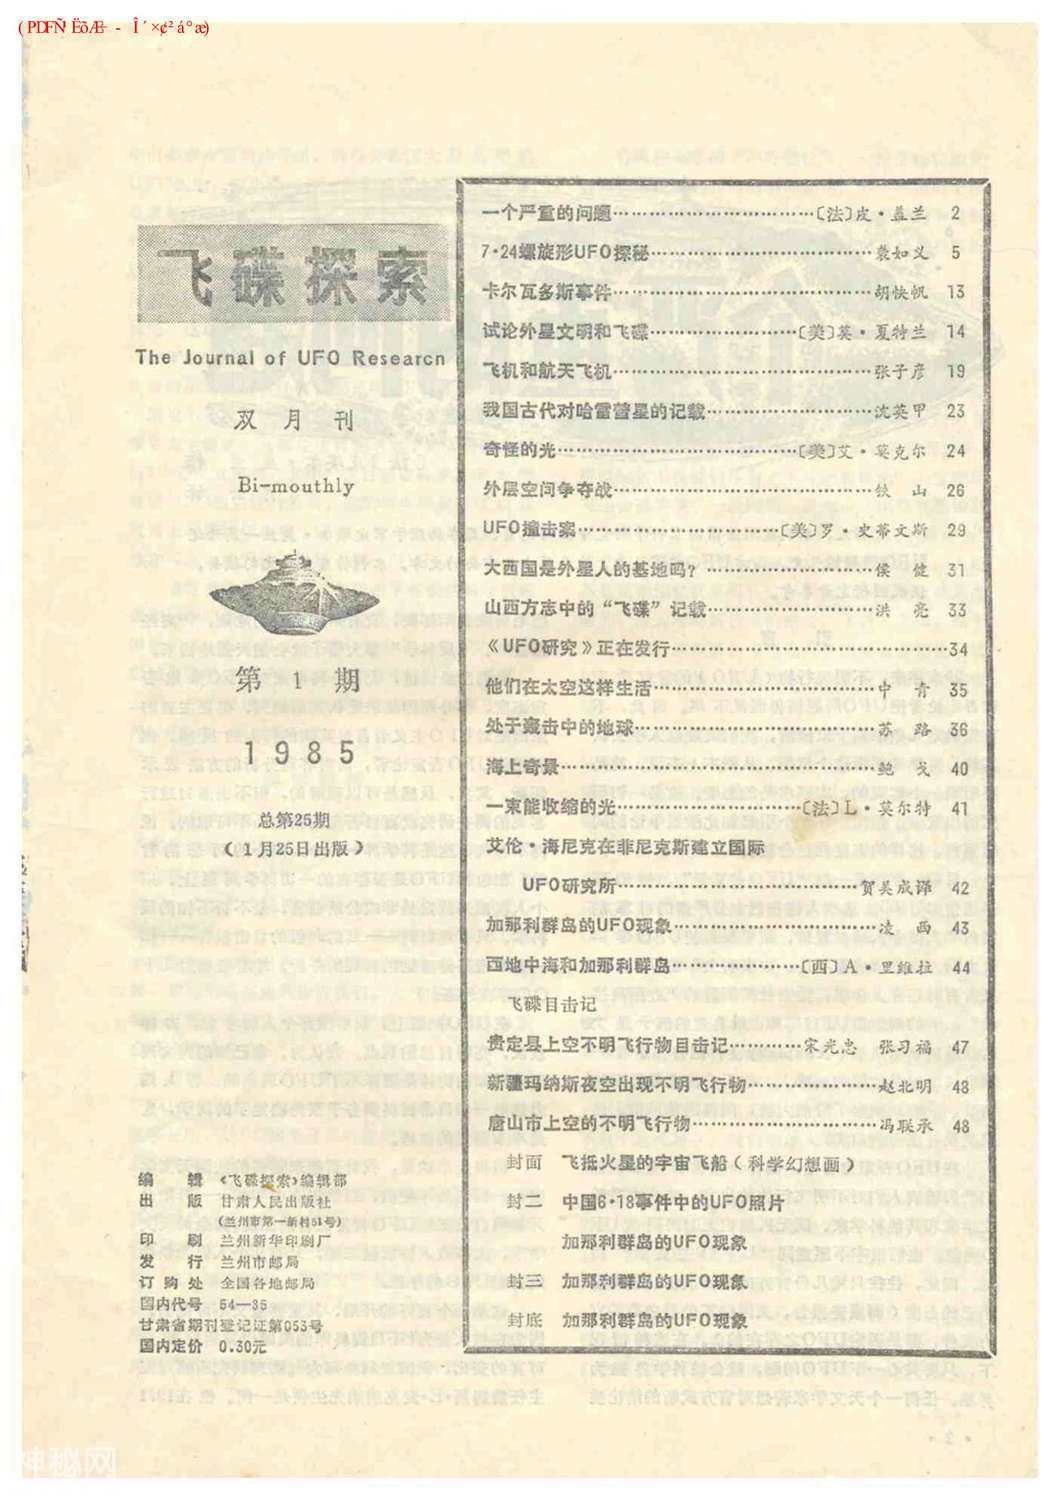 (PDFÑ¹ËõÆ÷ - Î´×¢²á°æ)
飞碟探索
The Journal of UFO Research
双月刊
Bi-mouthly
第1期
1985
总第25期
(1月25日出版)
编 辑 《飞碟探索》编辑部
出 版 甘肃人民出版社
(兰州市第一新村51号)
印 刷 兰州新华印刷厂
发 行 兰州市邮局
订购处 全国各地邮局
国内代号 54—35
甘肃省期刊登记证第053号
国内定价 0.30元
一个严重的问题……〔法〕皮·盖兰 2
7·24螺旋形UFO探秘……裴如义 5
卡尔瓦多斯事件……胡快帆 13
试论外星文明和飞碟……〔美〕莫·夏特兰 14
飞机和航天飞机……张子彦 19
我国古代对哈雷彗星的记载……沈英甲 23
奇怪的光……〔美〕艾·莫克尔 24
外层空间争夺战……铁 山 26
UFO撞击案……〔美〕罗·史蒂文斯 29
大西国是外星人的基地吗?……侯 健 31
山西方志中的“飞碟”记载……洪 亮 33
《UFO研究》正在发行……34
他们在太空这样生活……中 青 35
处于轰击中的地球……苏 路 36
海上奇景……鲍 戈 40
一束能收缩的光……〔法〕L·莫尔特 41
艾伦·海尼克在菲尼克斯建立国际
UFO研究所……贺美成译 42
加那利群岛的UFO现象……凌 西 43
西地中海和加那利群岛……〔西〕A·里维拉 44
飞碟目击记
贵定县上空不明飞行物目击记……宋光忠 张习福 47
新疆玛纳斯夜空出现不明飞行物……赵北明 48
唐山市上空的不明飞行物……冯联承 48
封面 飞抵火星的宇宙飞船(科学幻想画)
封二 中国6·18事件中的UFO照片
加那利群岛的UFO现象
封三 加那利群岛的UFO现象
封底 加那利群岛的UFO现象
神秘网